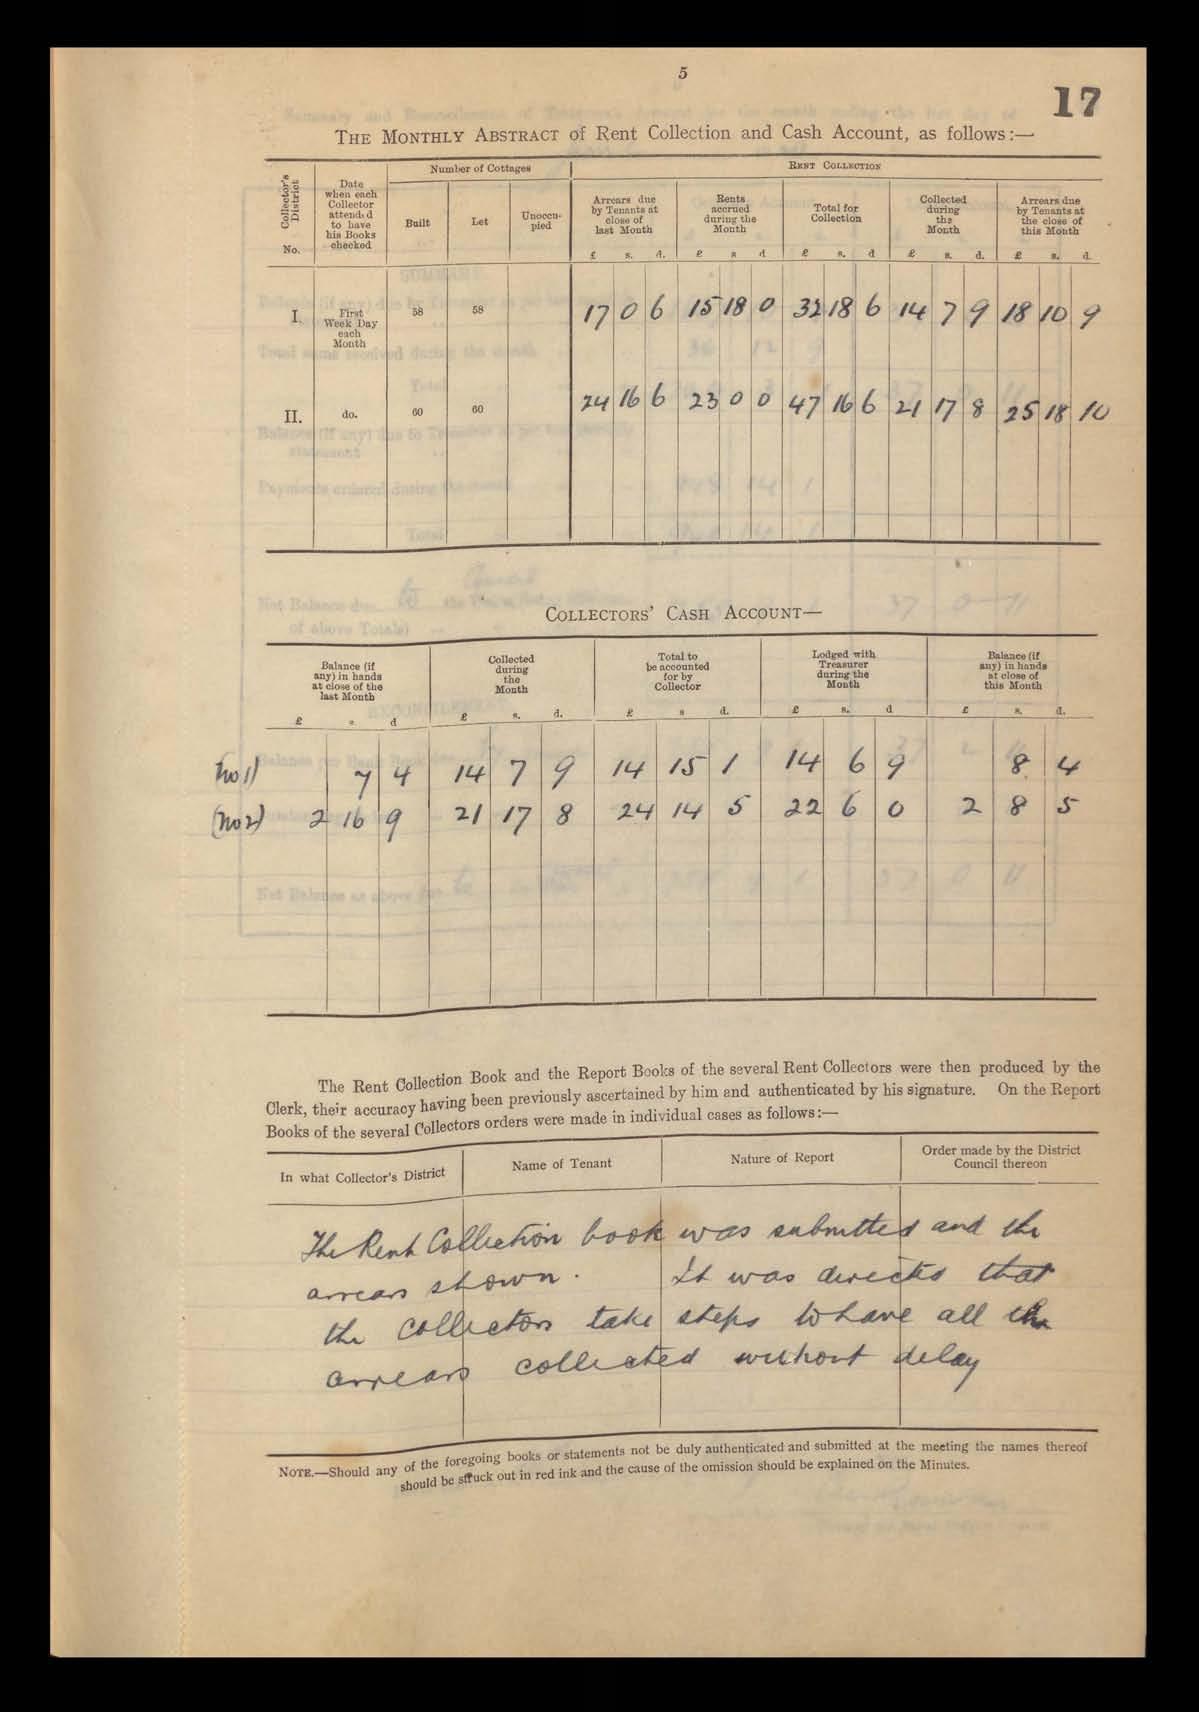 5
17
THE MONTHLY ABSTRACT of Rent Collection and Cash Account, as follows:—
Collector's District No.
Date when each Collector attended to have his Books checked
Number of Cottages
Built
Let
Unoccupied
RENT COLLECTION
Arrears due by Tenants at close of last Month
Rents accrued during the Month
Total for Collection
Collected during the Month
Arrears due by Tenants at the close of this Month
£ s. d. £ s d £ s. d £ s. d. £ s. d.
I. First Week Day each Month 58 58 17 0 6 15 18 0 32 18 6 14 7 9 18 10 9
II. do. 60 60 24 16 6 23 0 0 47 16 6 21 17 8 25 18 10
COLLECTORS' CASH ACCOUNT—
Balance (if any) in hands at close of the last Month
Collected during the Month
Total to be accounted for by Collector
Lodged with Treasurer during the Month
Balance (if any) in hands at close of this Month
£ s d £ s. d. £ s d. £ s. d £ s. d.
(No 1) 7 4 14 7 9 14 15 1 14 6 9 8 4
(No 2) 2 16 9 21 17 8 24 14 5 22 6 0 2 8 5
The Rent Collection Book and the Report Books of the several Rent Collectors were then produced by the
Clerk, their accuracy having been previously ascertained by him and authenticated by his signature. On the Report
Books of the several Collectors orders were made in individual cases as follows:—
In what Collector's District
Name of Tenant
Nature of Report
Order made by the District Council thereon
The Rent Collection book was submitted and the
arrears shown. It was directed that
the collectors take steps to have all the
arrears collected without delay
NOTE.—Should any of the foregoing books or statements not be duly authenticated and submitted at the meeting the names thereof
should be struck out in red ink and the cause of the omission should be explained on the Minutes.